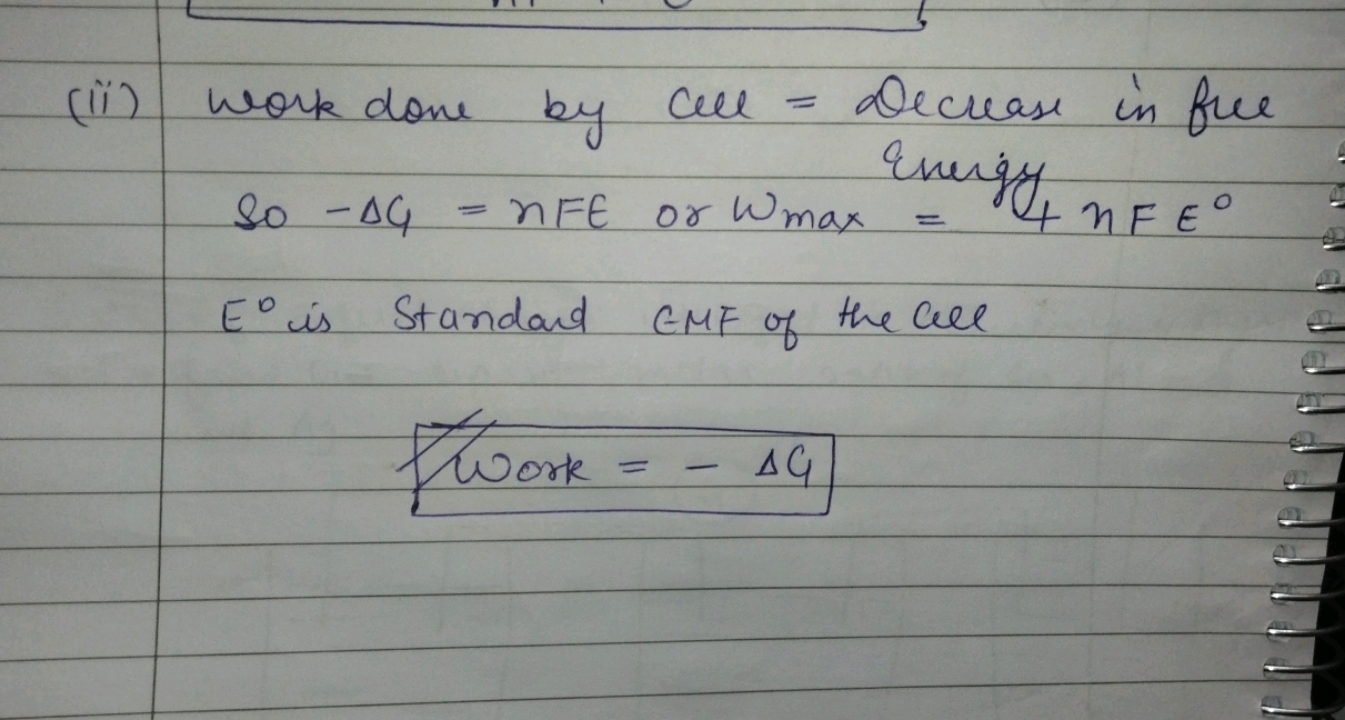 (ii) Work done by Cell = Decrease in free
Energy
So -ΔG = nFE or Wmax = + nFE°
E° is Standard EMF of the Cell
Work = - ΔG